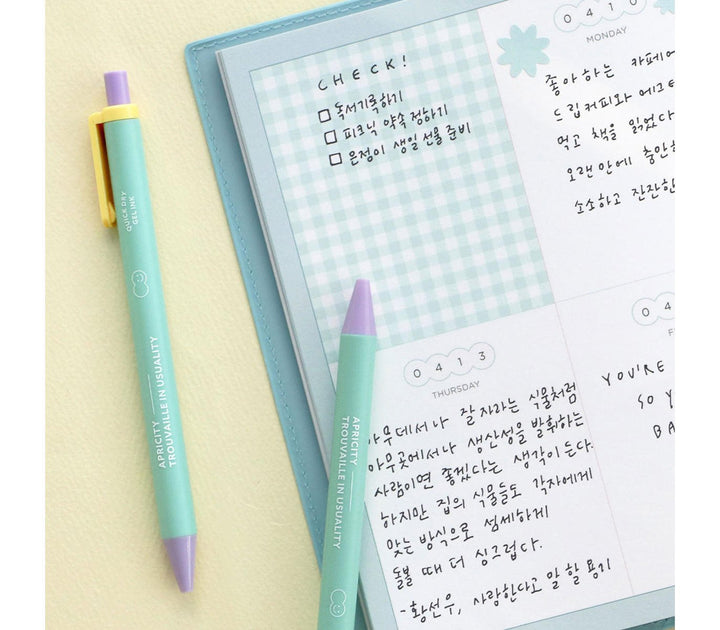 QUICK DRY
GEL INK
APRICITY
TROUVAILLE IN USUALITY
CHECK!
독서기록하기
피크닉 약속 정하기
은정이 생일 선물 준비
0410
MONDAY
좋아하는 카페에
드립커피와
먹고 책을 읽었다
오랜만에
소소하고 잔잔한
0413
THURSDAY
아무데서나 잘 자라는 식물처럼
아무곳에서나 생산성을 발휘하는
사람이면 좋겠다는 생각이 든다.
하지만 집의 식물들도 각자에게
맞는 방식으로 섬세하게
돌볼 때 더 싱그럽다.
- 황선우, 사랑한다고 말할 용기
04
YOU'RE
SO
APRICITY
TROUVAILLE IN USUALITY